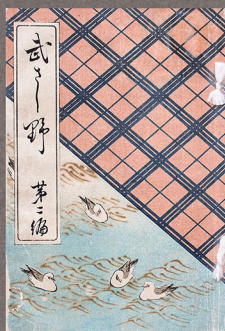 武さし野 第二編